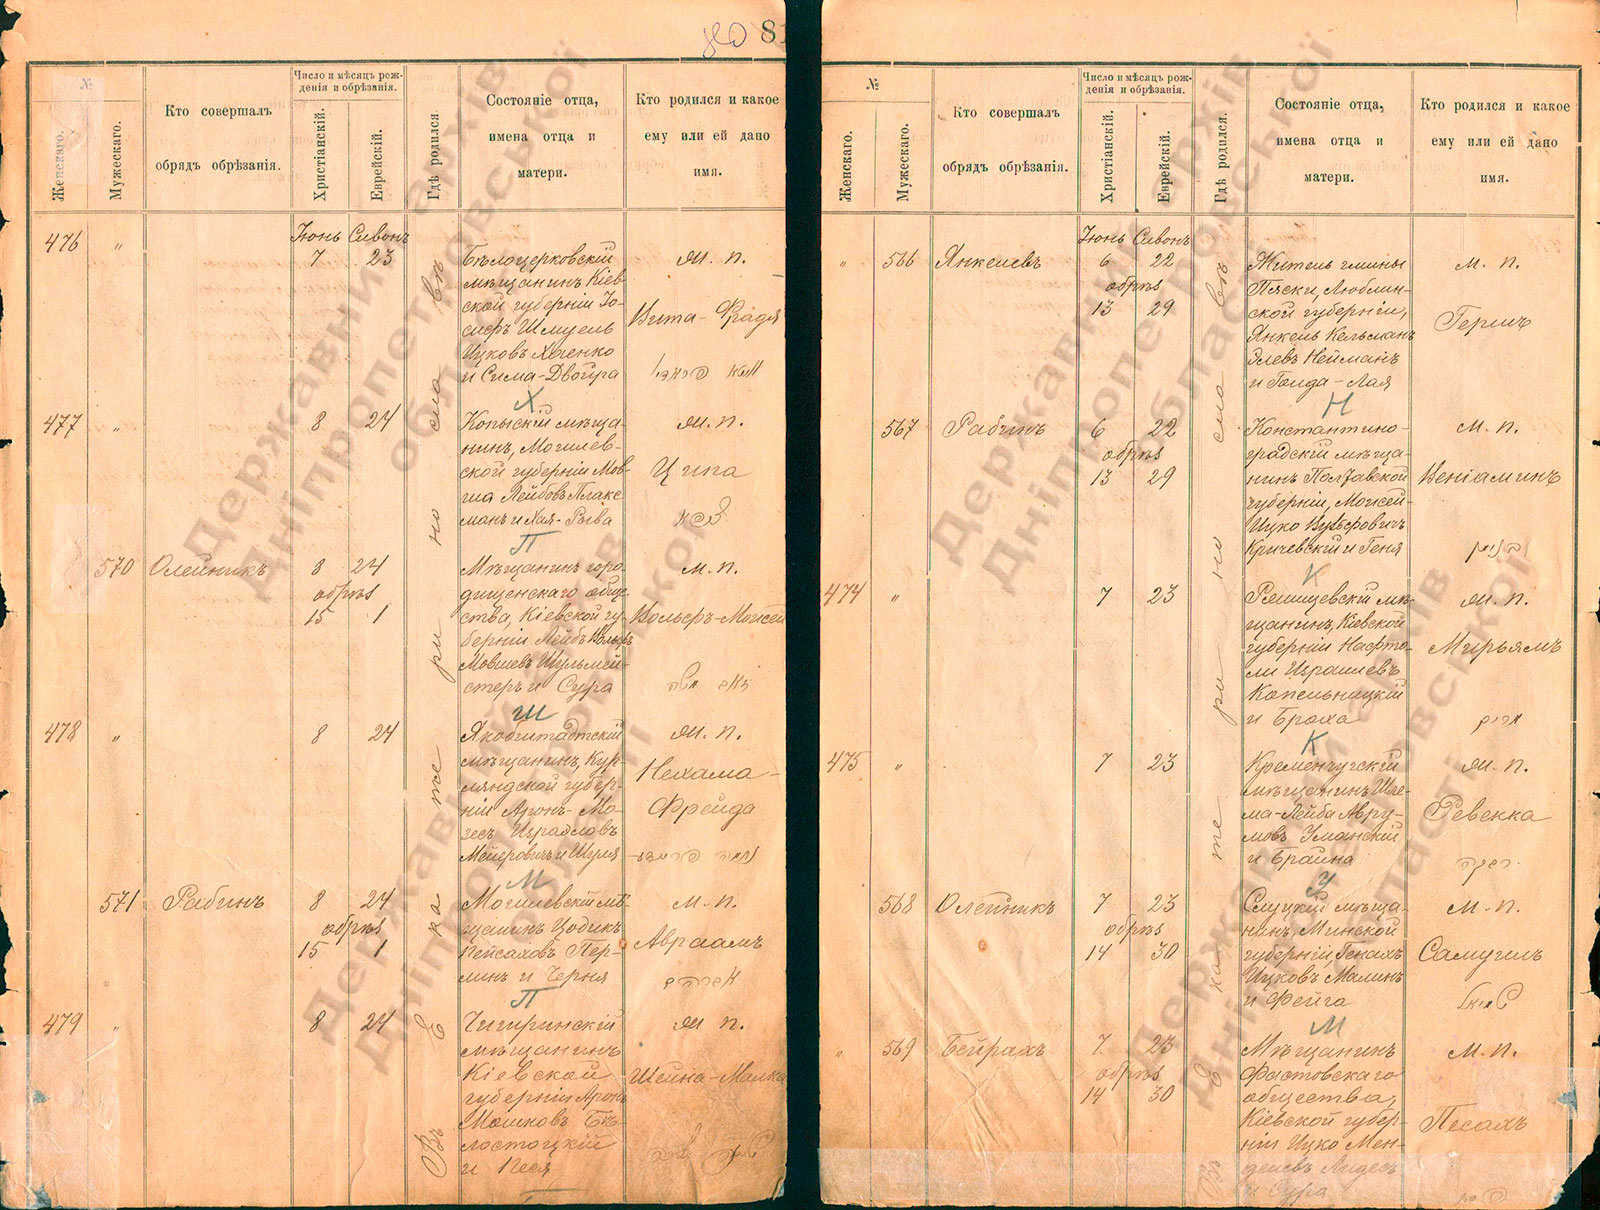 80 81
№
Женскаго.
Мужескаго.
Кто совершалъ
обрядъ обрѣзанія.
Число и мѣсяцъ рож-
денія и обрѣзанія.
Христіанскій.
Еврейскій.
Гдѣ родился
Состояніе отца,
имена отца и
матери.
Кто родился и какое
ему или ей дано
имя.
Въ Екатеринославѣ
476 " Іюнь Сивонъ
7 23
Бѣлоцерковскій
мѣщанинъ Кіев-
ской губерніи Іо-
сифъ Шмуель
Ицковъ Хаенко
и Сима-Двойра
м. п.
Вита-Фрадя
Х
477 " 8 24
Копыскій мѣща-
нинъ, Могилев-
ской губерніи Мов-
ша Лейбовъ Плакс-
манъ и Хая-Рыва
м. п.
Ципа
П
570 Олейникъ 8 24
обрѣз
15 1
Мѣщанинъ горо-
дищенскаго обще-
ства, Кіевской гу-
берніи Лейбъ Вольфъ
Мовшевъ Шульмей-
стеръ и Сура
м. п.
Вольфъ-Моисей
Ш
478 " 8 24
Якобштадтскій
мѣщанинъ, Кур-
ляндской губер-
ніи Аронъ-Мо-
зесъ Израэловъ
Мейеровичъ и Шуля
м. п.
Нехама-
Фрейда
М
571 Рабинъ 8 24
обрѣз
15 1
Могилевскій мѣ-
щанинъ Цодикъ
Пейсаховъ Пер-
линъ и Черня
м. п.
Авраамъ
П
479 " 8 24
Чигиринскій
мѣщанинъ
Кіевской
губерніи Аронъ
Мошковъ Бѣ-
лостоцкій
и Песя
м. п.
Шейна-Малка
№
Женскаго.
Мужескаго.
Кто совершалъ
обрядъ обрѣзанія.
Число и мѣсяцъ рож-
денія и обрѣзанія.
Христіанскій.
Еврейскій.
Гдѣ родился.
Состояніе отца,
имена отца и
матери.
Кто родился и какое
ему или ей дано
имя.
Въ Екатеринославѣ
" 566 Янкелевъ Іюнь Сивонъ
6 22
обрѣз
13 29
Житель гмины
Пяски, Люблин-
ской губерніи,
Янкель Кельманъ
Элевъ Нейманъ
и Голда-Лая
м. п.
Гершъ
Н
567 Рабинъ 6 22
обрѣз
13 29
Константино-
градскій мѣща-
нинъ Полтавской
губерніи, Моисей-
Ицко Вульфовичъ
Кричевскій и Геня
м. п.
Веніаминъ
К
474 " 7 23
Ржищевскій мѣ-
щанинъ, Кіевской
губерніи Нафто-
ли Израилевъ
Копельницкій
и Броха
м. п.
Мирьямъ
К
475 " 7 23
Кременчугскій
мѣщанинъ Шле-
ма-Лейба Авру-
мовъ Уманскій
и Брайна
м. п.
Ревекка
У
568 Олейникъ 7 23
обрѣз
14 30
Слуцкій мѣща-
нинъ, Минской
губерніи, Генахъ
Ицковъ Малинъ
и Фейга
м. п.
Самуилъ
М
" 569 Бейрахъ 7 23
обрѣз
14 30
Мѣщанинъ
Фастовскаго
общества,
Кіевской губер-
ніи Ицко Мен-
делевъ Лидесъ
и Сура
м. п.
Песахъ
Державний архів
Дніпропетровської
області